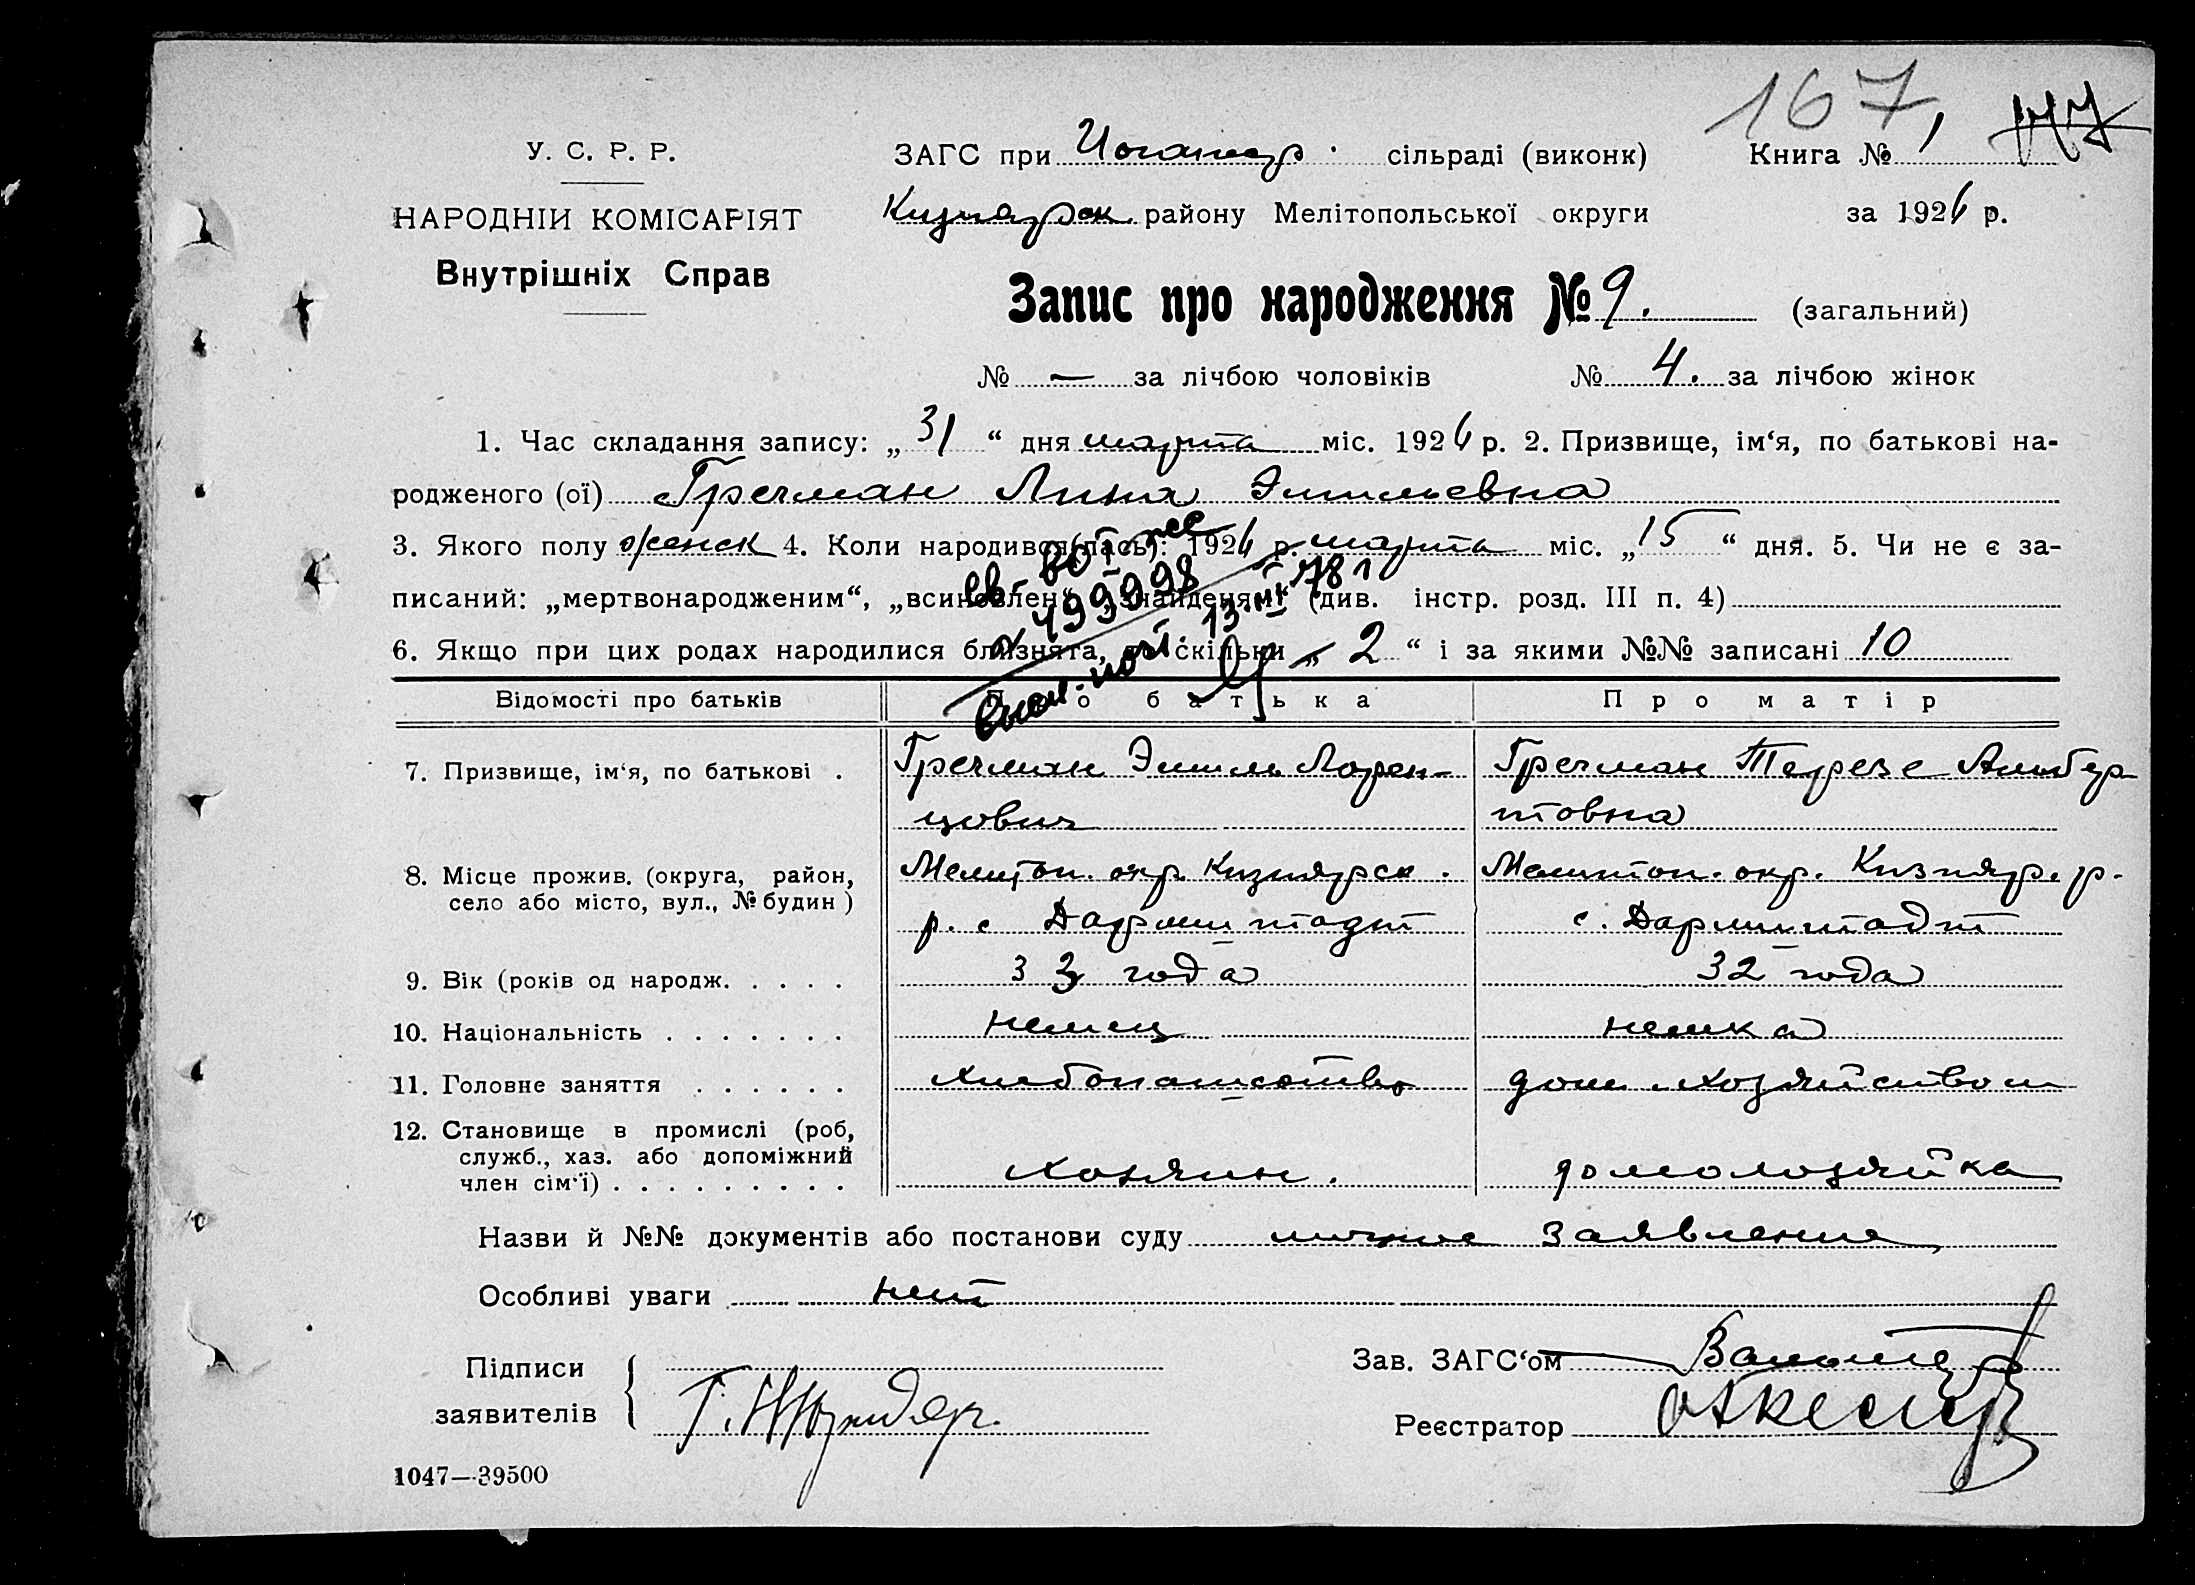 167
У. С. Р. Р.
НАРОДНІЙ КОМІСАРІЯТ
Внутрішніх Справ
ЗАГС при сільраді (виконк) Книга № 1
Кизиярск. району Мелітопольської округи за 1926 р.
Запис про народження № 9. (загальний)
№ — за лічбою чоловіків № 4. за лічбою жінок
1. Час складання запису: „31“ дня марта міс. 1926 р. 2. Призвище, ім‘я, по батькові на-
родженого (ої) Гречман Лина Эмильевна
3. Якого полу женск 4. Коли народився(лась): 1926 р. марта міс. „15“ дня. 5. Чи не є за-
писаний: „мертвонародженим“, „всиновлен“, „знайденям“ (див. інстр. розд. III п. 4)
6. Якщо при цих родах народилися близнята, то скільки „2“ і за якими №№ записані 10
Відомості про батьків Про батька Про матір
7. Призвище, ім‘я, по батькові . Гречман Эмиль Лорен- Гречман Терезе Альбер
цович товна
8. Місце прожив. (округа, район, Мелитоп. окр. Кизиярск. Мелитоп. окр. Кизияр. р.
село або місто, вул., № будин) р. с Дармштадт с. Дармштадт
9. Вік (років од народж. . . . . 33 года 32 года
10. Національність . . . . . . . немец немка
11. Головне заняття . . . . . . хлебопашество дом. хозяйством
12. Становище в промислі (роб,
служб., хаз. або допоміжний
член сім‘ї) . . . . . . . . . хозяин. домохозяйка
Назви й №№ документів або постанови суду личное заявление
Особливі уваги нет
Підписи
заявителів
Зав. ЗАГС‘ом
Реєстратор
1047—39500